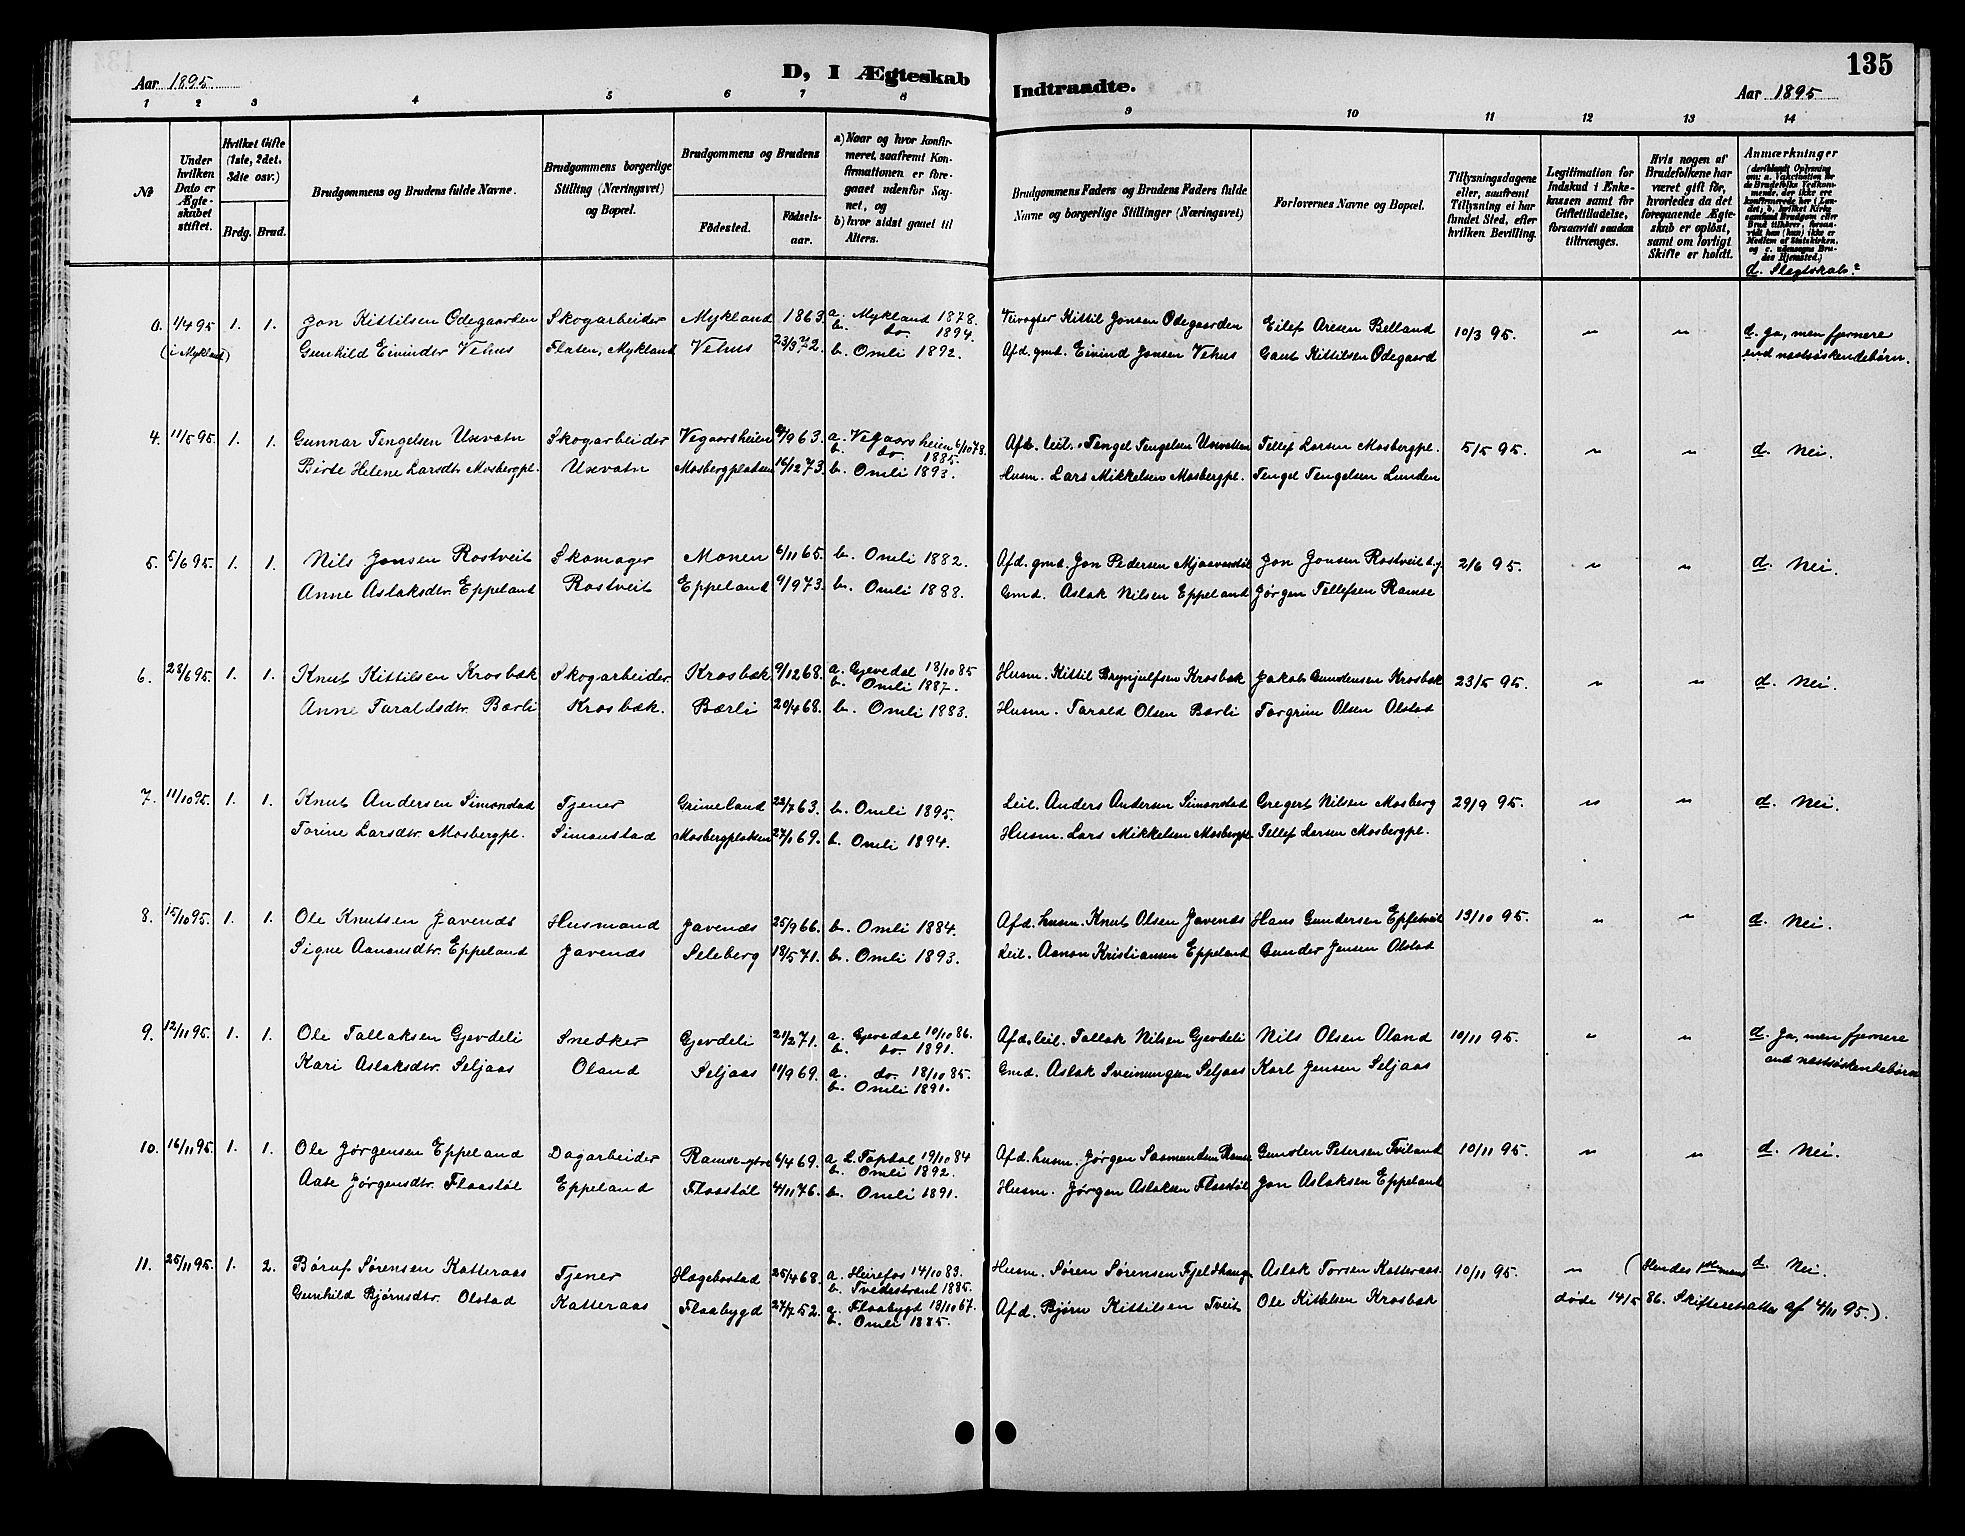 135
Aar 1895
D, I Ægteskab
Indtraadte.
Aar 1895
1 2 3 4 5 6 7 8 9 10 11 12 13 14
No
Under hvilken Dato er Ægteskabet stiftet.
Hvilket Gifte (1ste, 2det. 3die osv.)
Brdg. Brud.
Brudgommens og Brudens fulde Navne.
Brudgommens borgerlige Stilling (Næringsvei) og Bopæl.
Brudgommens og Brudens
Födested. Födselsaar.
a) Naar og hvor konfirmeret, saafremt Konfirmationen er foregaaet udenför Sognet, og
b) hvor sidst gaaet til Alters.
Brudgommens Faders og Brudens Faders fulde Navne og borgerlige Stillinger (Næringsvei)
Forlovernes Navne og Bopæl.
Tillysningsdagene eller, saafremt Tillysning ei har fundet Sted, efter hvilken Bevilling.
Legitimation for Indskud i Enkekassen samt for Giftetilladelse, forsaavidt saadan tiltrænges.
Hvis nogen af Brudefolkene har været gift för, hvorledes da det foregaaende Ægteskab er oplöst, samt om lovligt Skifte er holdt.
Anmærkninger
d. Slegtskab?
0. 1/4 95 1. 1. Jon Kittilsen Ødegaarden Skogarbeider Mykland 1863. a. Mykland 1878. Kittil Jonsen Ødegaarden Eilef Aresen Belland 10/3 95. " " d. Ja, men fjernere
b. do. 1894.
(i Mykland) Gunhild Eivindsdtr Vehus Flaten, Mykland Vehus 23/3 72. b. Omli 1892. Afd. gmd. Eivind Jonsen Vehus Gaut Kittilsen Ødegaard end næstsøskendebørn.
4. 11/5 95. 1. 1. Gunnar Tengelsen Uxvatn Skogarbeider Vegaarsheien /9 63. a. Vegaarsheien 6/10 78. Afd. leil. Tengel Tengelsen Uxvatten Tellef Larsen Mosbergpl. 5/5 95. " " d. Nei.
b. do. 1885.
Birte Helene Larsdtr Mosbergpl. Uxvatn Mosbergplatsen 16/12 73. b. Omli 1893. Husm. Lars Mikkelsen Mosbergpl. Tengel Tengelsen Lunden
5. 5/6 95. 1. 1. Nils Jonsen Rostveit Skomager Monen 6/11 65. b. Omli 1882. Afd. gmd. Jon Pedersen Jon Jonsen Rostveit d.y. 2/6 95. " " d. Nei.
Anne Aslaksdtr. Eppeland Rostveit Eppeland 9/9 73. b. Omli 1888. Gmd. Aslak Nilsen Eppeland Jørgen Tellefsen Ramse
6. 28/6 95. 1. 1. Knut Kittilsen Krosbæk Skogarbeider Krosbæk 9/12 68. a. Gjevedal 18/10 85 Husm. Kittil Brynjulfsen Krosbæk Jakob Gundersen Krosbæk 23/5 95. " " d. Nei.
b. Omli 1887.
Anne Taraldsdtr. Bærli Krosbæk. Bærli 20/4 68. b. Omli 1883. Husm. Tarald Olsen Bærli Torgrim Olsen Olstad
7. 11/10 95. 1. 1. Knut Andersen Simonstad Tjener Grimeland 22/7 63. b. Omli 1895. Leil. Anders Andersen Simonstad Gregert Nilsen Mosberg 29/9 95. " " d. Nei.
Torine Larsdtr. Mosbergpl. Simonstad Mosbergplatsen 27/1 69. b. Omli 1894. Husm. Lars Mikkelsen Mosbergpl. Tellef Larsen Mosbergpl.
8. 15/10 95. 1. 1. Ole Knutsen Javends Husmand Javends 25/9 66. b. Omli 1884. Afd. husm. Knut Olsen Javends Hans Gundersen Eppetveit 13/10 95. " " d. Nei.
Signe Aanonsdtr. Eppeland Javends Seleberg 18/5 71. b. Omli 1893. Leil. Aanon Kristiansen Eppeland Gunder Jensen Olstad
9. 12/11 95. 1. 1. Ole Tallaksen Gjevdeli Snedker Gjevdeli 21/2 71. a. Gjevedal 10/10 86. Afd. leil. Tallak Nilsen Gjevdeli Nils Olsen Oland 10/11 95. " " d. Ja, men fjernere
b. do. 1891.
Kari Aslaksdtr. Seljaas Oland Seljaas 11/9 69. a. do. 18/10 85. Gmd. Aslak Sveinungsen Seljaas Karl Jensen Seljaas end næstsøskendebørn
b. Omli 1891.
10. 16/11 95. 1. 1. Ole Jørgensen Eppeland Dagarbeider Ramse-ytre 6/4 69. a. Topdal 19/10 84 Afd. husm. Jørgen Salmundsen Ramse Gunsten Petersen Tveiland 10/11 95. " " d. Nei.
b. Omli 1892.
Aase Jørgensdtr. Flaastøl Eppeland Flaastøl 4/11 76. b. Omli 1891. Husm. Jørgen Aslaksen Flaastøl Jon Aslaksen Eppeland
11. 25/11 95. 1. 2. Børuf Sørensen Katteraas Tjener Hægebostad 25/4 68. a. Heirefos 14/10 83. Husm. Søren Sørensen Fjeldhaugen Aslak Torsen Katteraas 10/11 95. " (Hendes 1ste mand d. Nei.
b. Tvedestrand 1895.
Gunhild Bjørnsdtr. Olstad Katteraas Flaabygd 27/7 52. a. Flaabygd 19/10 67. Afd. Bjørn Kittilsen Tveit Ole Kittilsen Krosbæk døde 14/5 86. Skifteretsatte. af 4/11 95.).
b. Omli 1885.